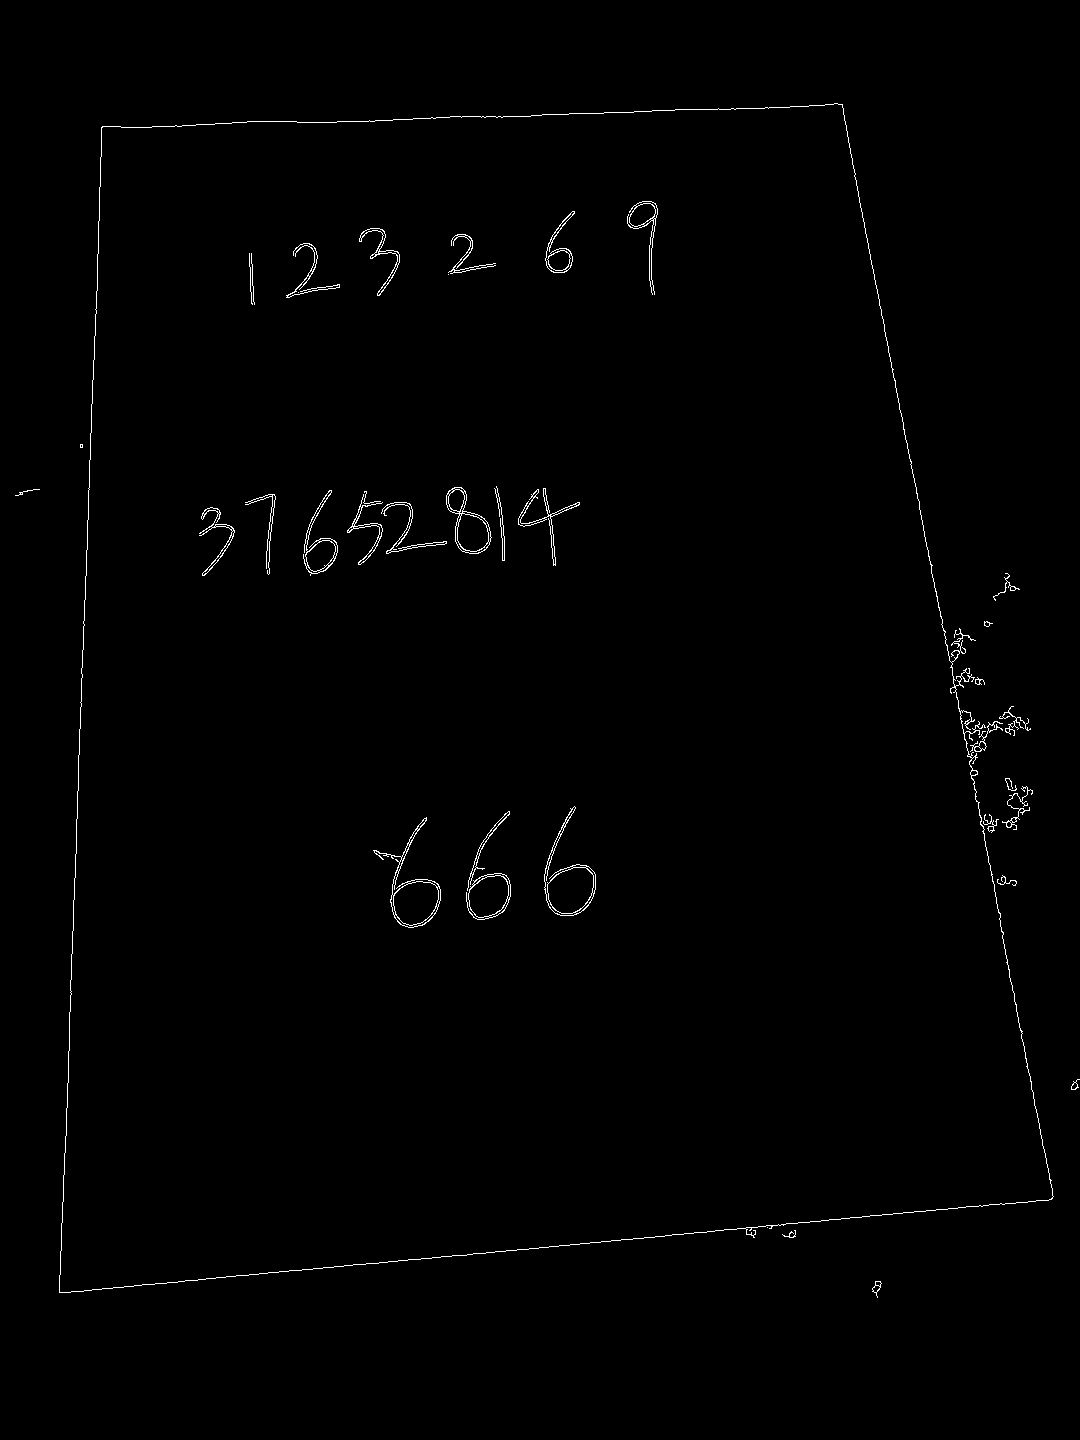 1 2 3 2 6 9
37652814
666